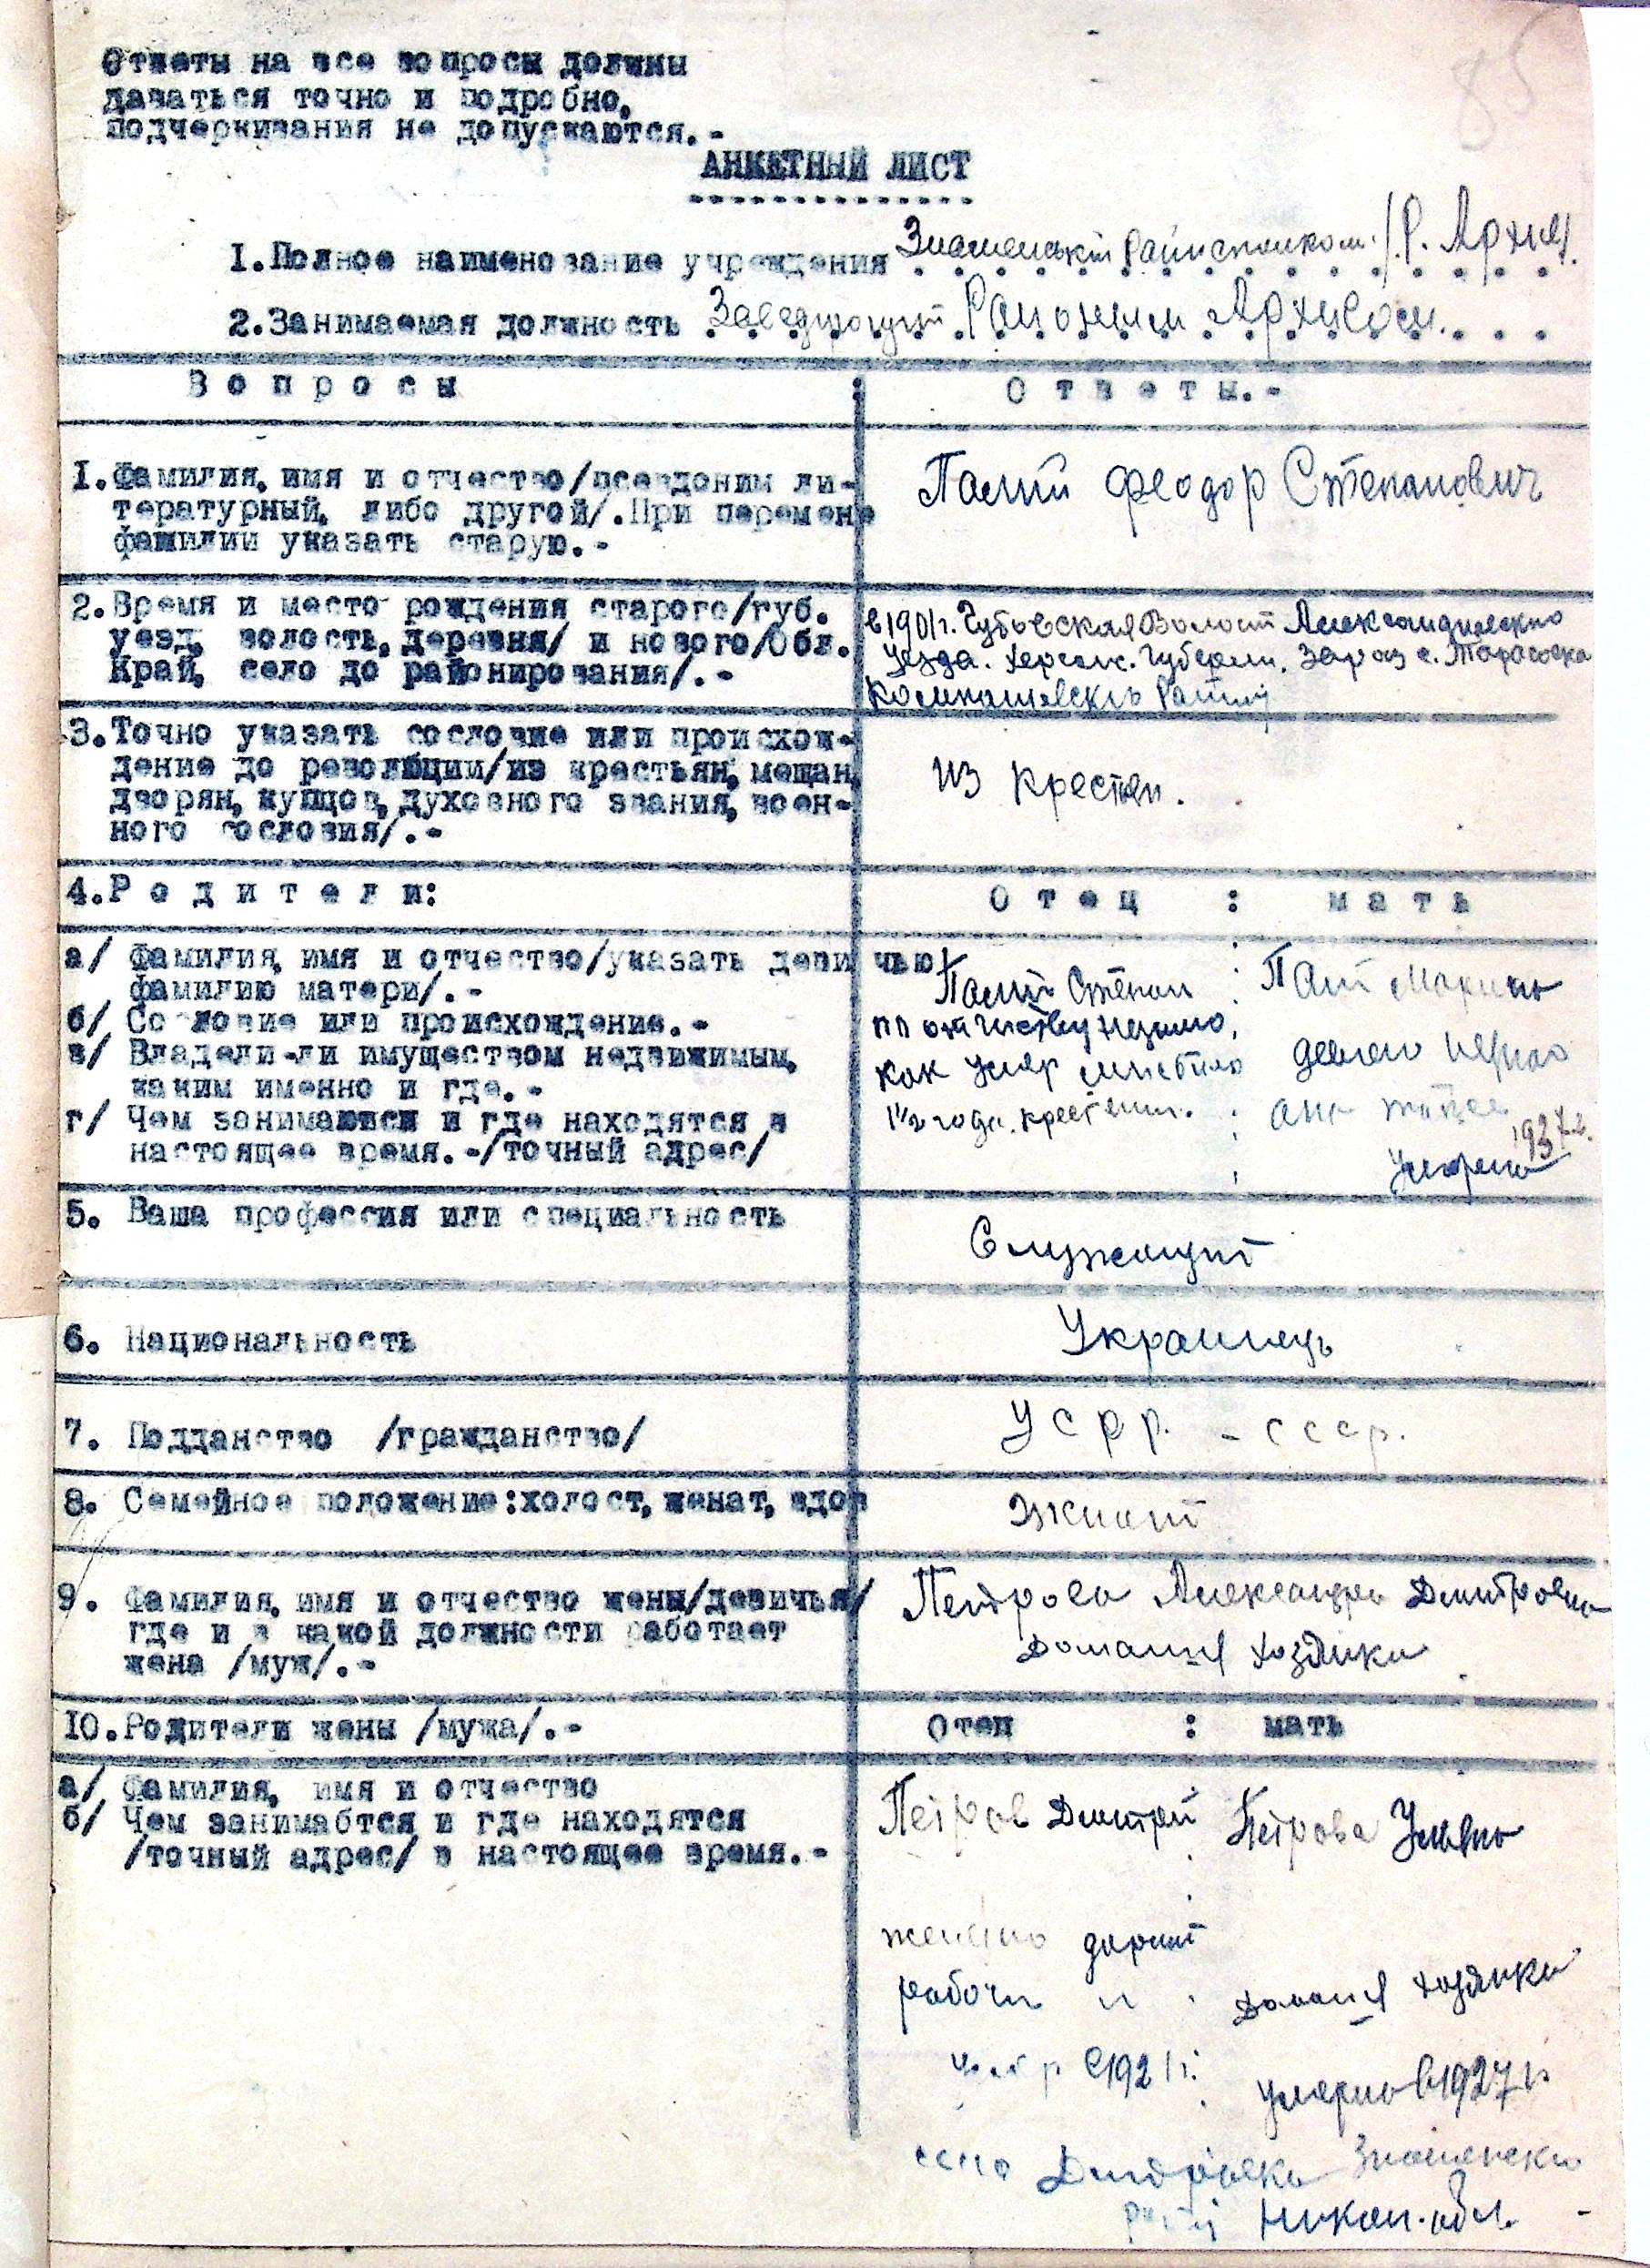 85
Ответы на все вопросы должны
даваться точно и подробно,
подчеркивания не допускаются.-
АНКЕТНЫЙ ЛИСТ
1.Полное наименование учреждения Знаменський Райисполком /Р. Архив/.
2.Занимаемая должность Заведующий Районым Архивом
Вопросы : Ответы.-
1.Фамилия, имя и отчество/псевдоним ли-
тературный, либо другой/.При перемене
фамилии указать старую.-
Палий Феодор Степанович
2.Время и место рождения старого/губ.
уезд, волость, деревня/ и нового/Обл.
Край, село до районирования/.-
в 1901г. Губовская Волост Александрийского
уезда. Херсонс. Губерни, зараз с. Тарасовка
Компаниевского Району
3.Точно указать сословие или происхож-
дение до революции/из крестьян, мещан,
дворян, купцов, духовного звания, воен-
ного сословия/.-
из крестян.
4.Родители:
Отец : мать
а/ Фамилия, имя и отчество/указать девичью
фамилию матери/.-
б/ Сословие или происхождение.-
в/ Владели-ли имуществом недвижимым,
каким именно и где.-
г/ Чем занимаются и где находятся в
настоящее время.-/точный адрес/
Палий Степан
по отчеству
как умер мне было
1½ года. крестянин.
Палий Марина
1937г.
умерла
5. Ваша профессия или специальность
Служащий
6. Национальность
Украинець
7. Подданство /гражданство/
УСРР. - СССР.
8. Семейное положение:холост, женат, вдов
жнат
9. Фамилия, имя и отчество жены/девичья/
где и в какой должности работает
жена /муж/.-
Петрова Александра Дмитровна
Домашня хозяйка
10.Родители жены /мужа/.-
Отец : мать
а/ Фамилия, имя и отчество
б/ Чем занимабтся и где находятся
/точный адрес/ в настоящее время.-
Петров Дмитрий
Петрова Ульяна
рабочи
умер в 1921г.
Домашня хозяйка
умерла в 1927г.
село Дмитровка Знаменского
району Никол. обл.